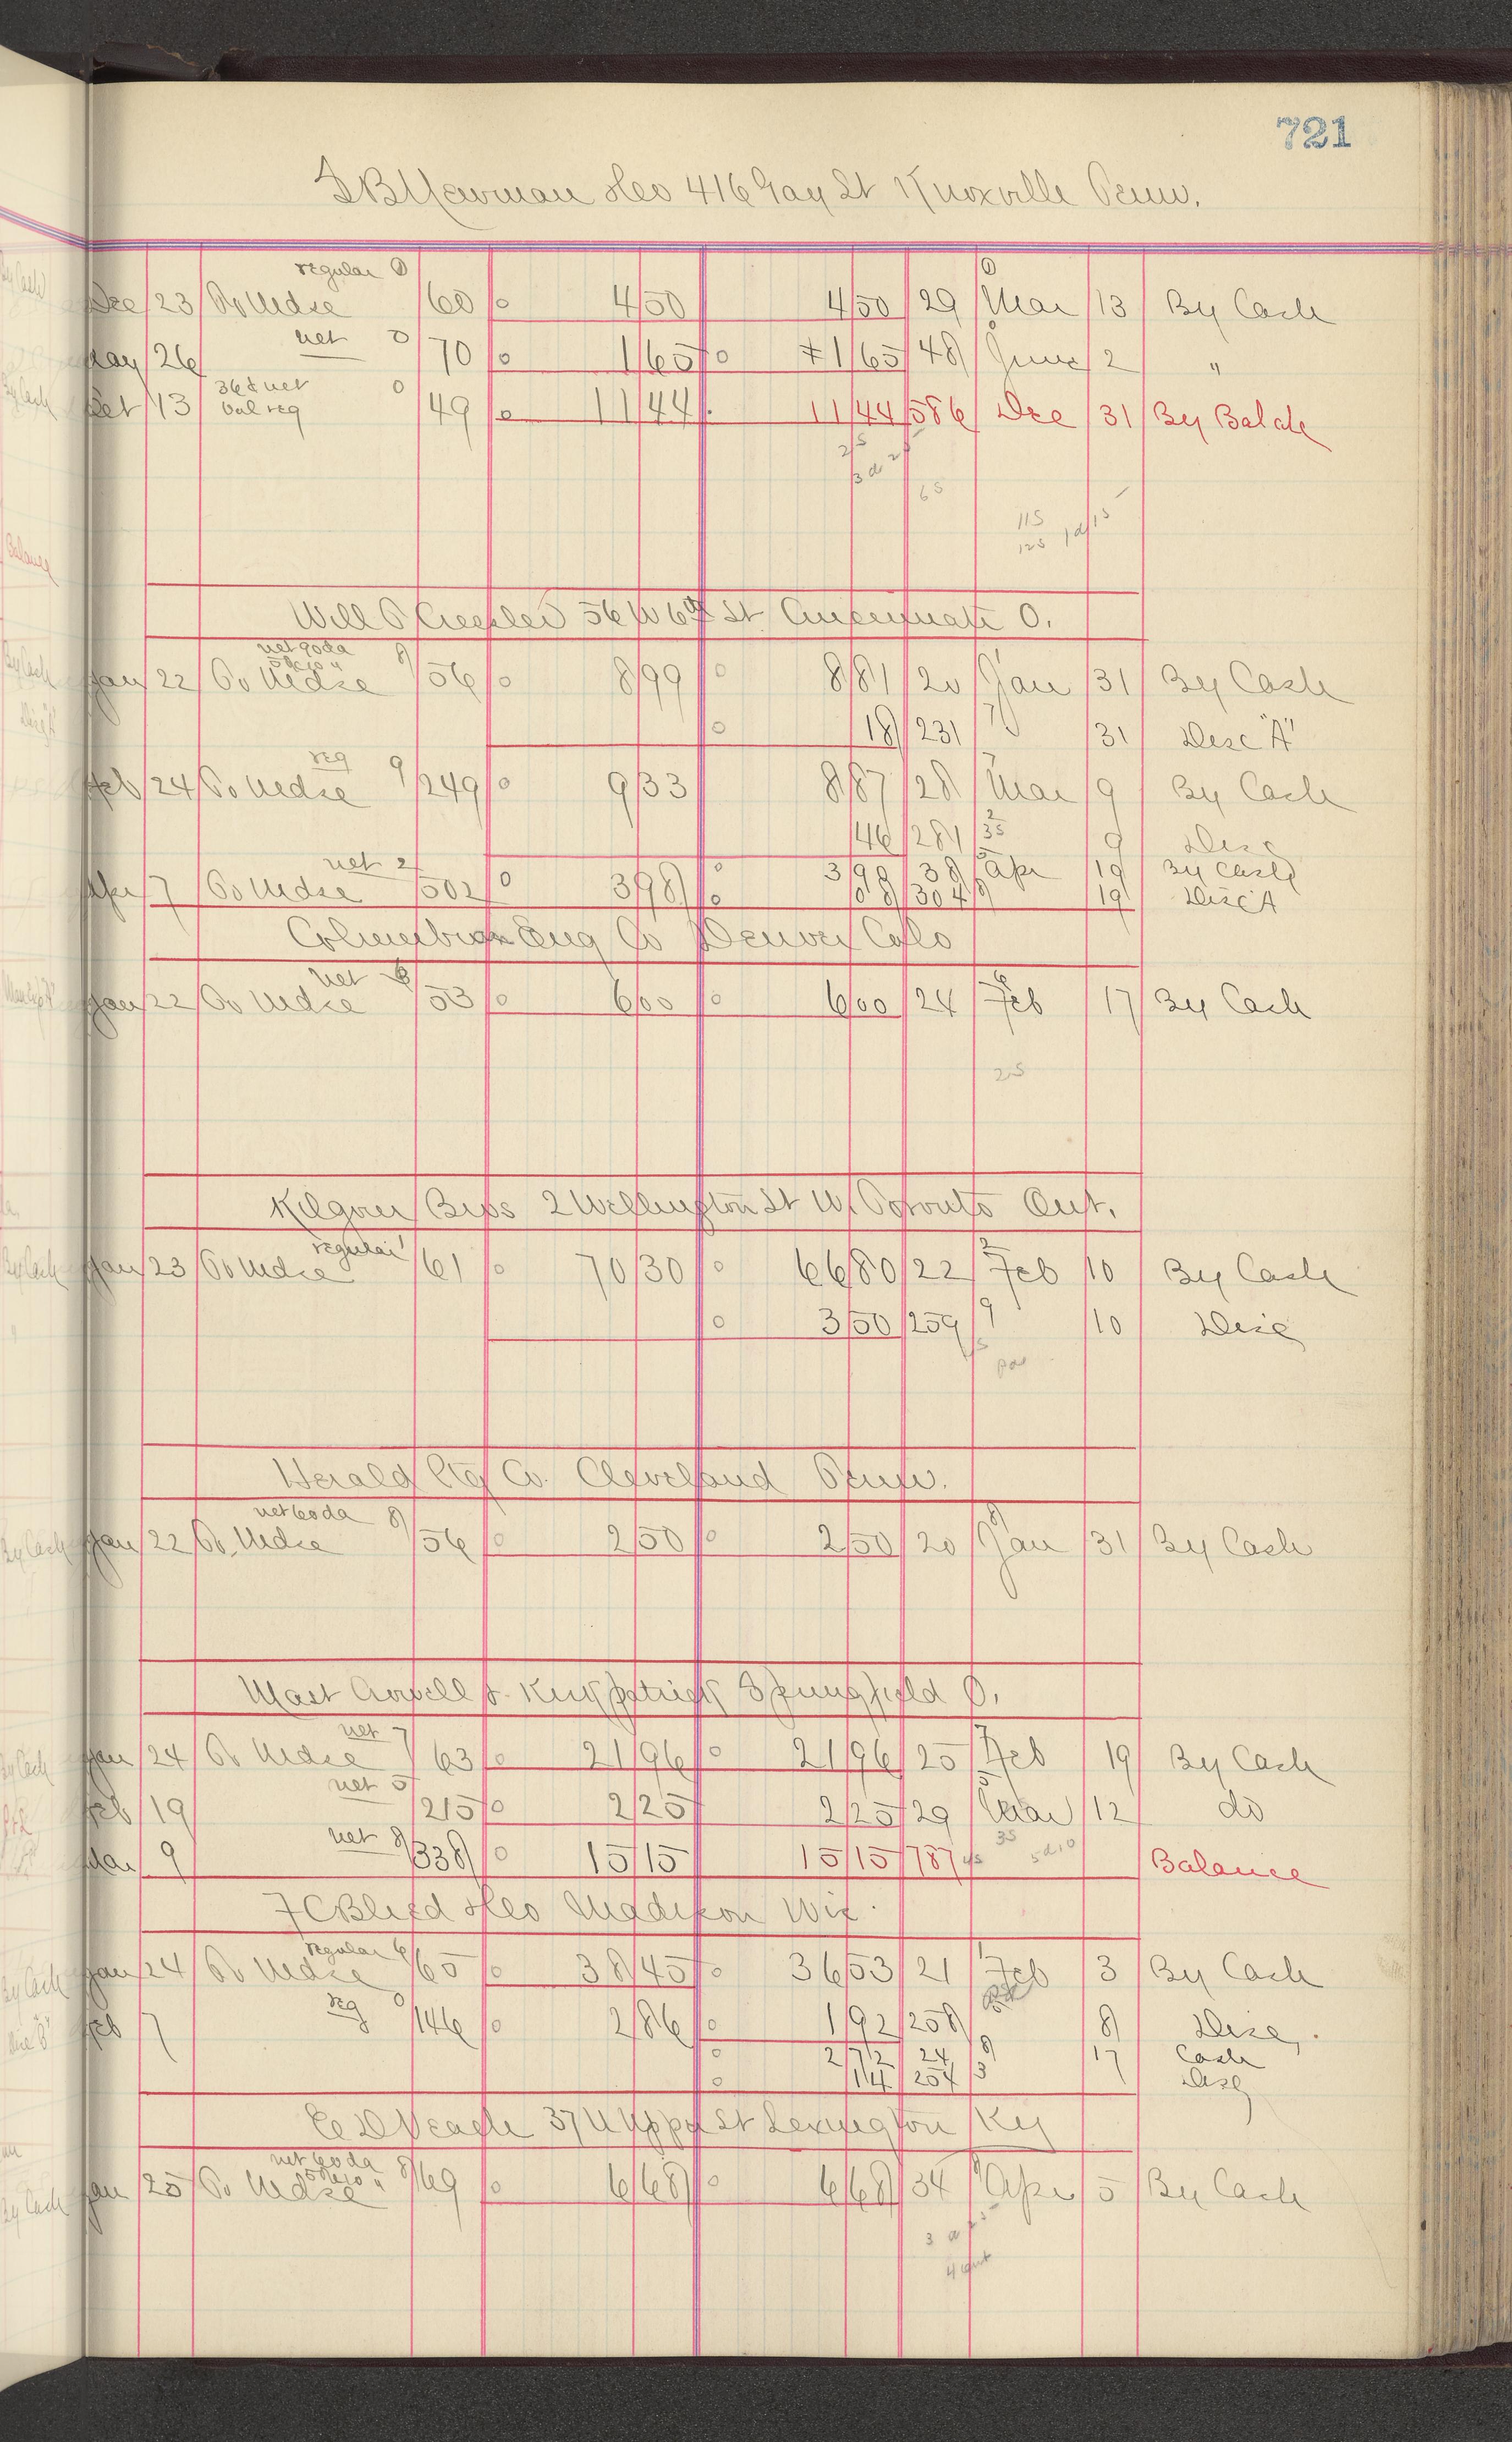 721
416 Gay St Knoxville Tenn.
regular 0 0
Dec 23 To Mdse 60 0 4 50 4 50 29 Mar 13 By Cash
net 0
May 26 70 0 1 65 0 1 65 48 June 2 "
36¢ net 0
bal reg
Oct 13 49 0 11 44 11 44 586 Dec 31 By Bal
25
65
115
125
Will 56 W 6th St Cincinnati O.
net 60 da 8
5 10 "
Jan 22 To Mdse 56 0 8 99 0 8 81 20 Jan 31 By Cash
0 18 231 31 Disc "A"
reg 9
Feb 24 To Mdse 249 0 9 33 8 87 28 Mar 9 By Cash
46 281 9 Disc
net 2
Apr 7 To Mdse 502 0 3 98 0 3 90 38 Apr 19 By Cash
0 8 304 19 Disc A
Columbian Eng Co Denver Colo
net 6
Jan 22 To Mdse 53 0 6 00 0 6 00 24 Feb 17 By Cash
25
Kilgour Bros 2 Wellington St W. Toronto Ont.
regular
Jan 23 To Mdse 61 0 70 30 0 66 80 22 Feb 10 By Cash
0 3 50 259 9 10 Disc
Herald Ptg Co. Cleveland Tenn.
net 60 da 8
Jan 22 To Mdse 56 0 2 50 0 2 50 20 Jan 31 By Cash
Mast Crowell & Kirkpatrick Springfield O.
net 7
Jan 24 To Mdse 63 0 21 96 0 21 96 25 Feb 19 By Cash
net 5
Feb 19 215 0 2 25 2 25 29 Mar 12 do
net 8
Mar 9 338 0 15 15 15 15 787 Balance
35
Madison Wis.
regular 6
Jan 24 To Mdse 65 0 38 45 0 36 53 21 Feb 3 By Cash
reg 0
Feb 7 146 0 2 86 0 1 92 258 8 Disc
0 2 72 24 8 17 Cash
0 14 254 3 Disc
37 N Upper St Lexington Ky
net 60 da 8
5 10 "
Jan 25 To Mdse 69 0 6 68 0 6 68 34 Apr 5 By Cash